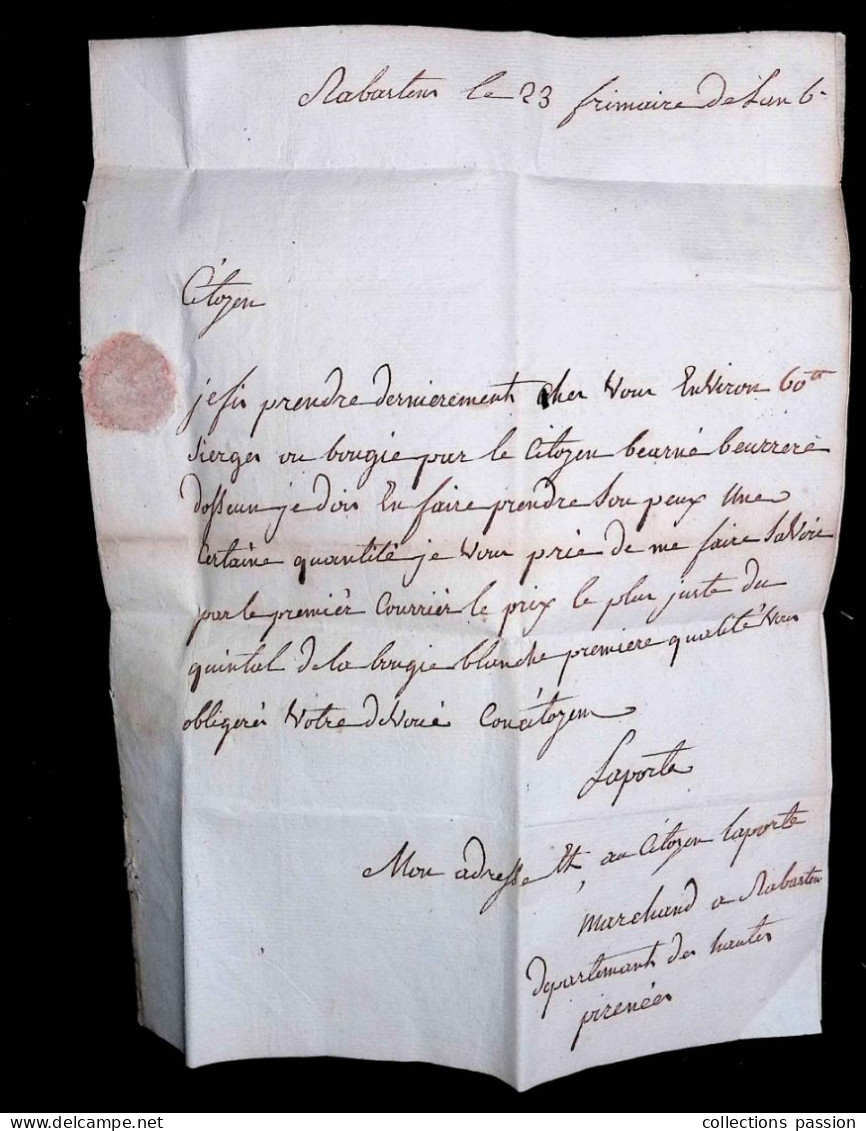 Rabastens le 23 frimaire de Lan 6
Citoyen
je fis prendre dernierement chez Vous Environ 60 tt
sierges ou bougie par le Citoyen bearné beurrere
dosseun je dois En faire prendre sou peux Une
Certaine quantité je Vous prie de me faire saVoir
par le premiér Courriér le prix le plus juste du
quintal de la bougie blanche premiere qualité Vous
obligerés Votre deVoué Concitoyen
Laporte
Mon adresse Et, au Citoyen laporte
marchand a Rabastens
departement des hautes
pirenées
collections passion